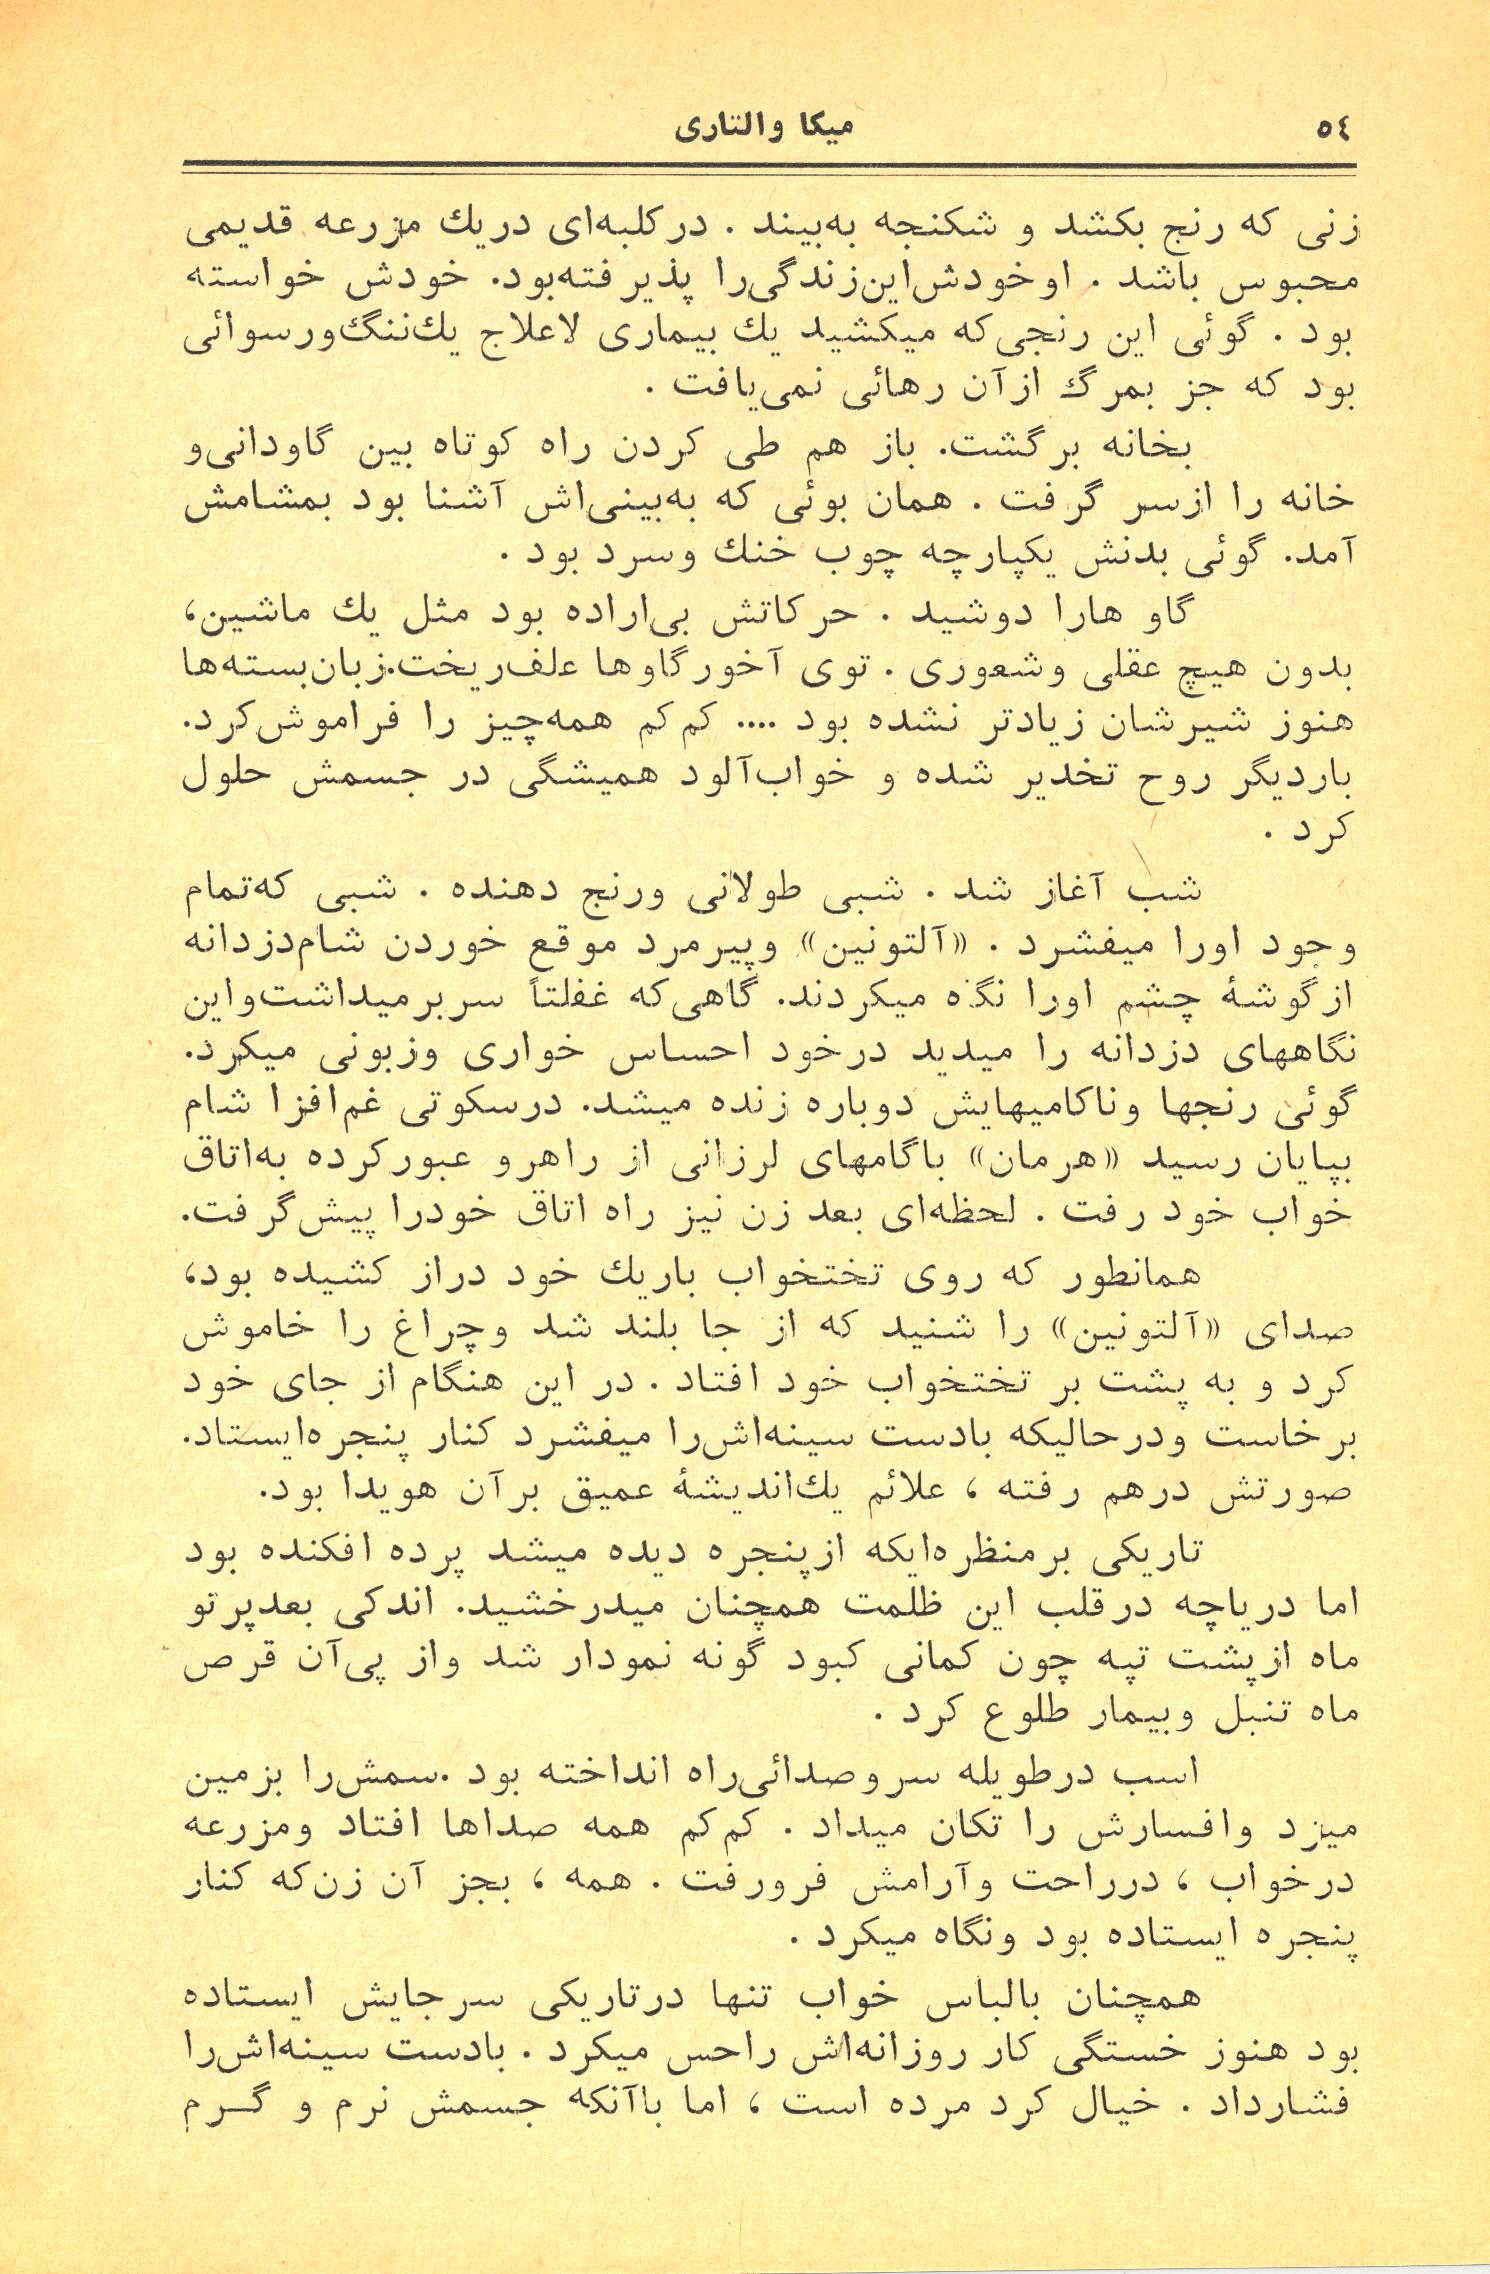 ٥٤
میکا والتاری
زنی که رنج بکشد و شکنجه به‌بیند . درکلبه‌ای دریك مزرعه قدیمی
محبوس باشد . اوخودش‌این‌زندگی‌را پذیرفته‌بود. خودش خواسته
بود . گوئی این رنجی‌که میکشید یك بیماری لاعلاج یك‌ننگ‌ورسوائی
بود که جز بمرگ ازآن رهائی نمی‌یافت .
بخانه برگشت. باز هم طی کردن راه کوتاه بین گاودانی‌و
خانه را ازسر گرفت . همان بوئی که به‌بینی‌اش آشنا بود بمشامش
آمد. گوئی بدنش یکپارچه چوب خنك وسرد بود .
گاو هارا دوشید . حرکاتش بی‌اراده بود مثل یك ماشین،
بدون هیچ عقلی وشعوری . توی آخورگاوها علف‌ریخت.زبان‌بسته‌ها
هنوز شیرشان زیادتر نشده بود .... کم‌کم همه‌چیز را فراموش‌کرد.
باردیگر روح تخدیر شده و خواب‌آلود همیشگی در جسمش حلول
کرد .
شب آغاز شد . شبی طولانی ورنج دهنده . شبی که‌تمام
وجود اورا میفشرد . «آلتونین» وپیرمرد موقع خوردن شام‌دزدانه
ازگوشهٔ چشم اورا نگه میکردند. گاهی‌که غفلتاً سربرمیداشت‌واین
نگاههای دزدانه را میدید درخود احساس خواری وزبونی میکرد.
گوئی رنجها وناکامیهایش دوباره زنده میشد. درسکوتی غم‌افزا شام
بپایان رسید «هرمان» باگامهای لرزانی از راهرو عبورکرده به‌اتاق
خواب خود رفت . لحظه‌ای بعد زن نیز راه اتاق خودرا پیش‌گرفت.
همانطور که روی تختخواب باریك خود دراز کشیده بود،
صدای «آلتونین» را شنید که از جا بلند شد وچراغ را خاموش
کرد و به پشت بر تختخواب خود افتاد . در این هنگام از جای خود
برخاست ودرحالیکه بادست سینه‌اش‌را میفشرد کنار پنجره‌ایستاد.
صورتش درهم رفته ، علائم یك‌اندیشهٔ عمیق برآن هویدا بود.
تاریکی برمنظره‌ایکه ازپنجره دیده میشد پرده افکنده بود
اما دریاچه درقلب این ظلمت همچنان میدرخشید. اندکی بعدپرتو
ماه ازپشت تپه چون کمانی کبود گونه نمودار شد واز پی‌آن قرص
ماه تنبل وبیمار طلوع کرد .
اسب درطویله سروصدائی‌راه انداخته بود .سمش‌را بزمین
میزد وافسارش را تکان میداد . کم‌کم همه صداها افتاد ومزرعه
درخواب ، درراحت وآرامش فرورفت . همه ، بجز آن زن‌که کنار
پنجره ایستاده بود ونگاه میکرد .
همچنان بالباس خواب تنها درتاریکی سرجایش ایستاده
بود هنوز خستگی کار روزانه‌اش راحس میکرد . بادست سینه‌اش‌را
فشارداد . خیال کرد مرده است ، اما باآنکه جسمش نرم و گـرم